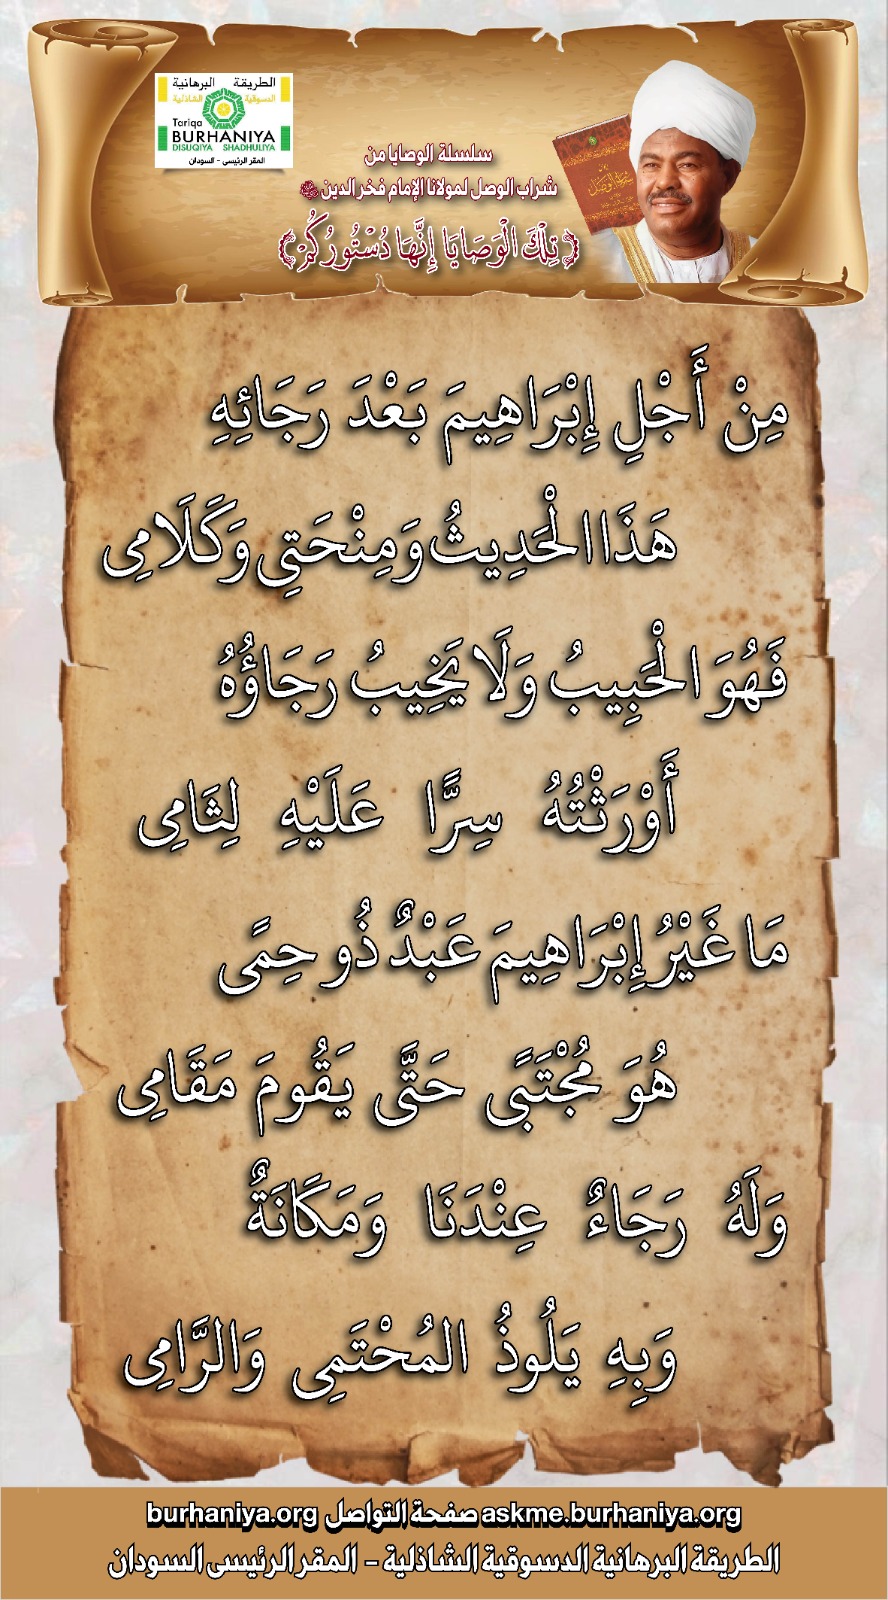 الطريقة البرهانية
الدسوقية الشاذلية
Tariqa
BURHANIYA
DISUQIYA SHADHULIYA
المقر الرئيسي - السودان
سلسلة الوصايا من
شراب الوصل لمولانا الإمام فخر الدين
﴿ تِلْكَ الْوَصَايَا إِنَّهَا دُسْتُورُكُمْ ﴾
شراب الوصل
مِنْ أَجْلِ إِبْرَاهِيمَ بَعْدَ رَجَائِهِ
هَذَا الْحَدِيثُ وَمِنْحَتِى وَكَلَامِى
فَهُوَ الْحَبِيبُ وَلَا يَخِيبُ رَجَاؤُهُ
أَوْرَثْتُهُ سِرًّا عَلَيْهِ لِثَامِى
مَا غَيْرُ إِبْرَاهِيمَ عَبْدٌ ذُو حِمًى
هُوَ مُجْتَبًى حَتَّى يَقُومَ مَقَامِى
وَلَهُ رَجَاءٌ عِنْدَنَا وَمَكَانَةٌ
وَبِهِ يَلُوذُ المُحْتَمِى وَالرَّامِى
askme.burhaniya.org صفحة التواصل burhaniya.org
الطريقة البرهانية الدسوقية الشاذلية - المقر الرئيسى السودان